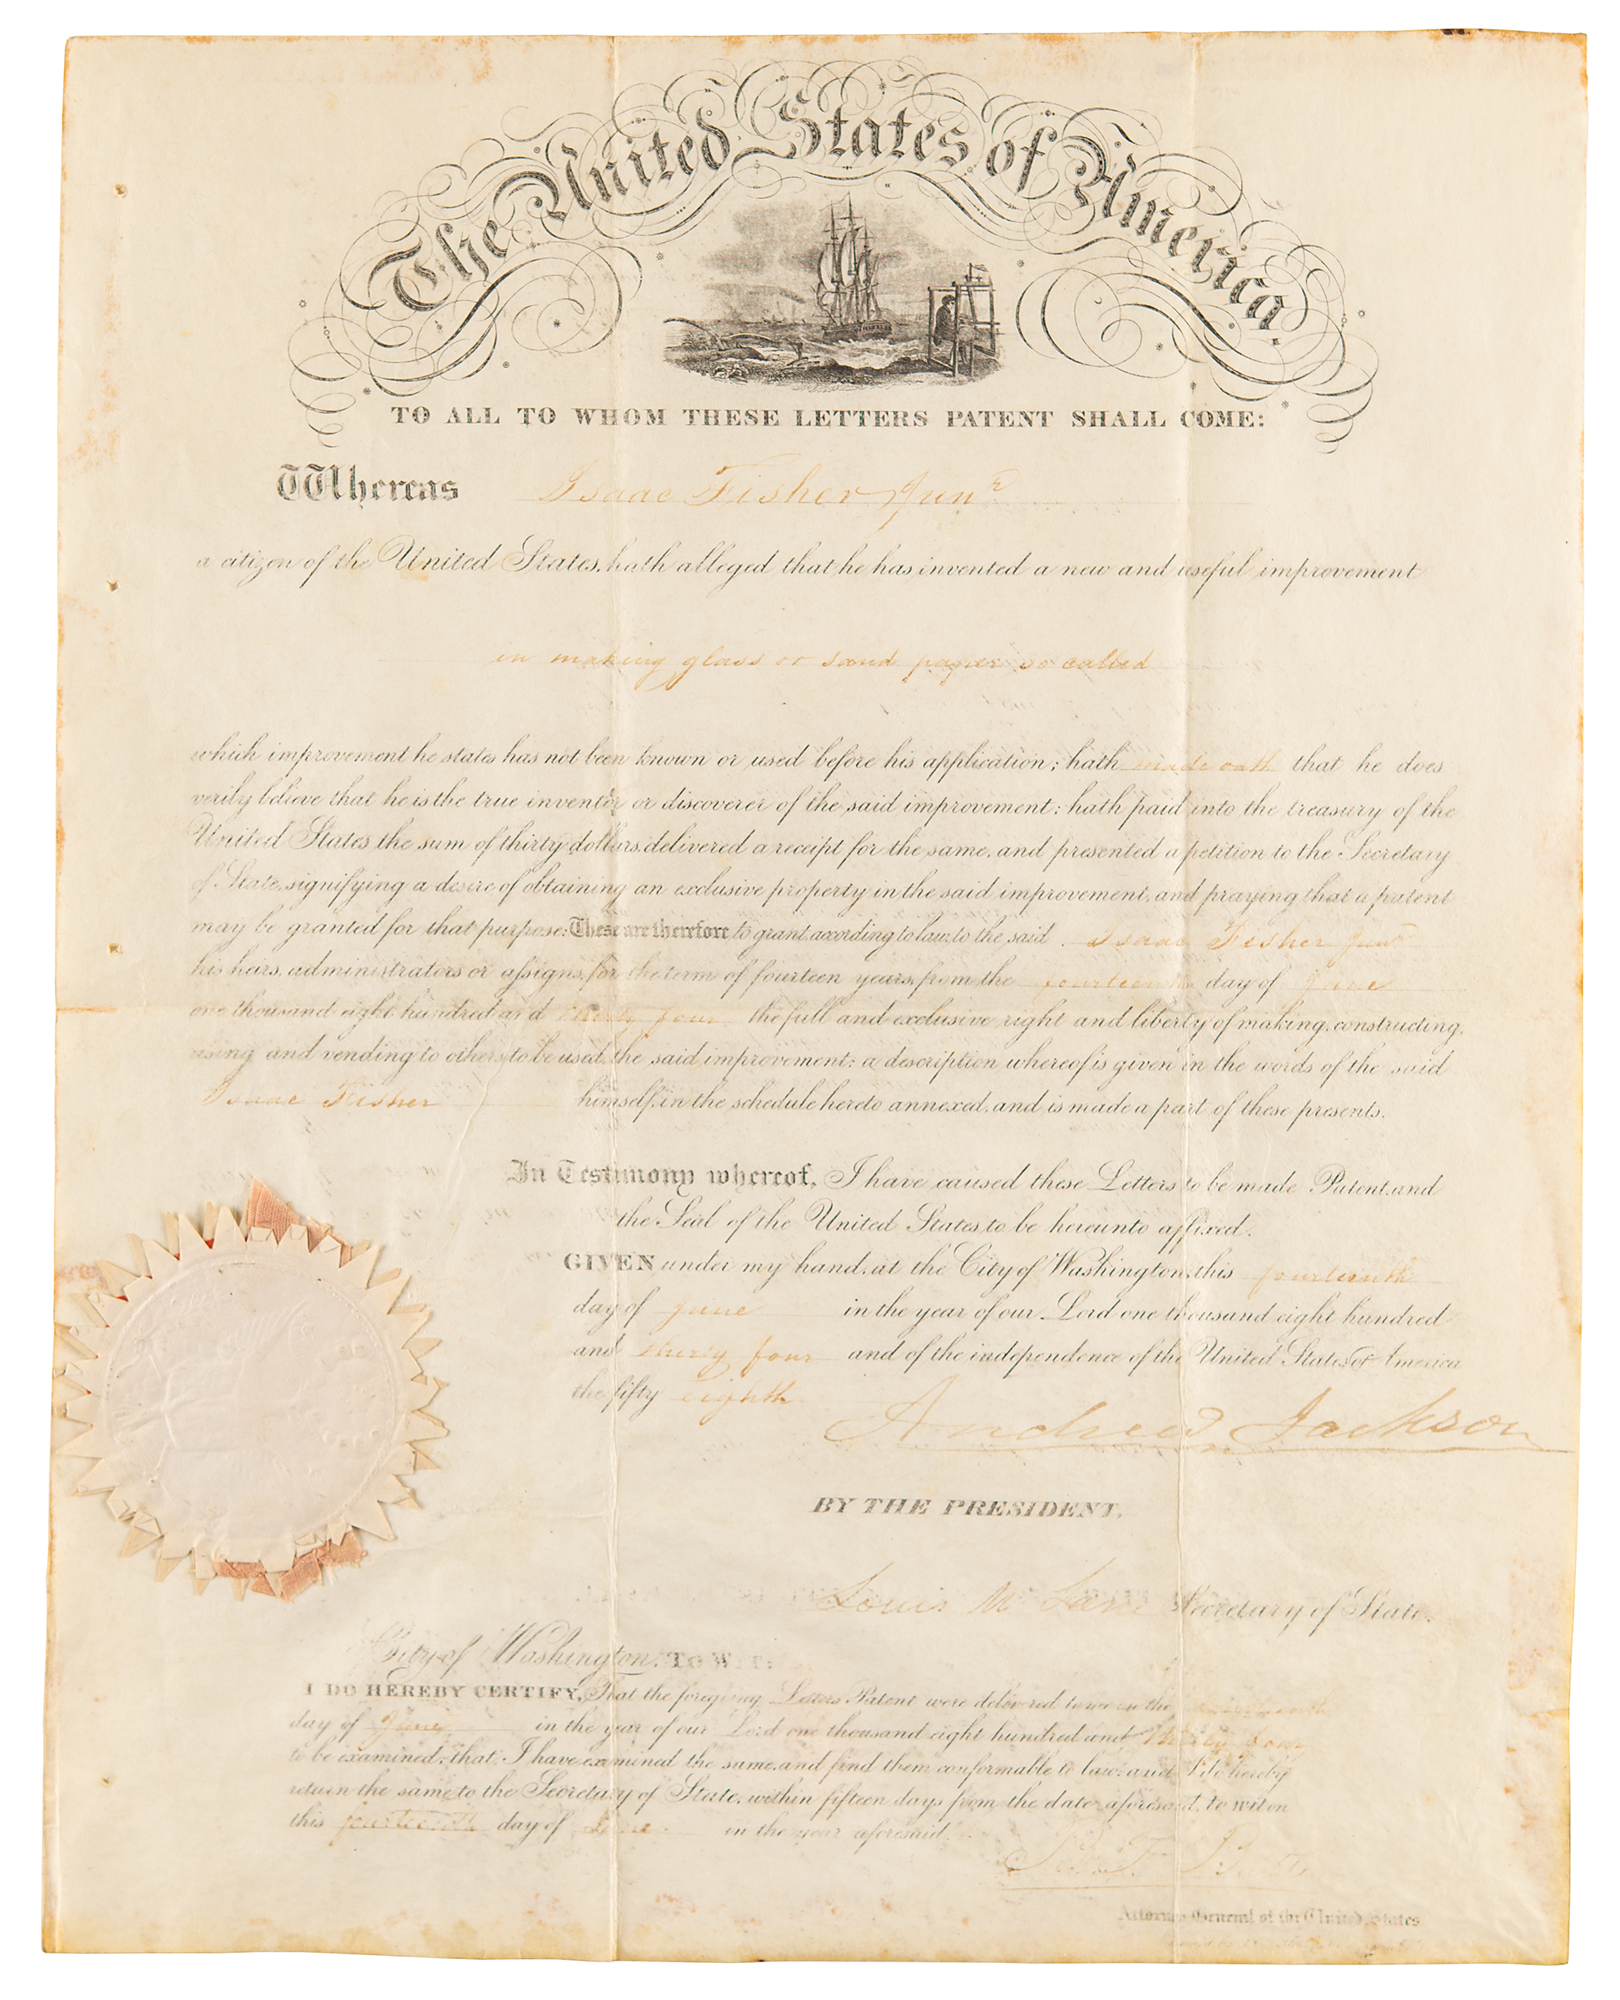 The United States of America
TO ALL TO WHOM THESE LETTERS PATENT SHALL COME:
Whereas Isaac Fisher Junr
a citizen of the United States, hath alleged that he has invented a new and useful improvement
in making glass or sand paper so called
which improvement he states has not been known or used before his application; hath made oath that he does
verily believe that he is the true inventor or discoverer of the said improvement; hath paid into the treasury of the
United States the sum of thirty dollars, delivered a receipt for the same, and presented a petition to the Secretary
of State, signifying a desire of obtaining an exclusive property in the said improvement, and praying that a patent
may be granted for that purpose: These are therefore to grant, according to law, to the said Isaac Fisher Junr
his heirs, administrators or assigns, for the term of fourteen years, from the fourteenth day of June
one thousand eight hundred and thirty four the full and exclusive right and liberty of making, constructing,
using and vending to others to be used, the said improvement: a description whereof is given in the words of the said
Isaac Fisher himself, in the schedule hereto annexed, and is made a part of these presents.
In Testimony whereof, I have caused these Letters to be made Patent, and
the Seal of the United States to be hereunto affixed.
GIVEN under my hand, at the City of Washington, this fourteenth
day of June in the year of our Lord one thousand eight hundred
and thirty four and of the independence of the United States of America
the fifty eighth
Andrew Jackson
BY THE PRESIDENT.
Louis McLane Secretary of State.
City of Washington, TO WIT:
I DO HEREBY CERTIFY, That the foregoing Letters Patent were delivered to me on the
day of June in the year of our Lord one thousand eight hundred and thirty four
to be examined; that I have examined the same, and find them conformable to law: and I do hereby
return the same to the Secretary of State, within fifteen days from the date aforesaid, to wit on
this fourteenth day of June in the year aforesaid.
Attorney General of the United States